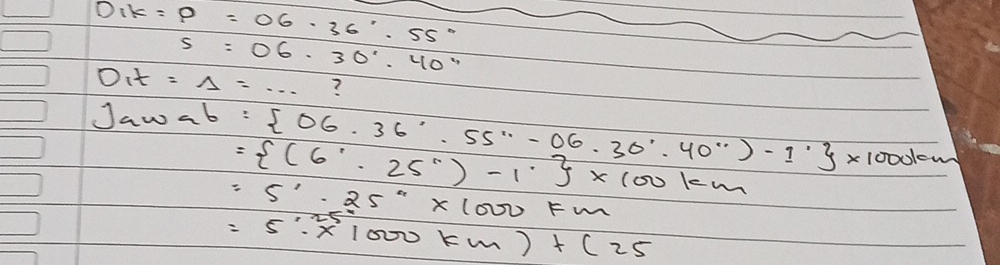 Dik = P = 06 . 36' . 55"
S = 06 . 30' . 40"
Dit = Δ = ... ?
Jawab = { 06 . 36' . 55" - 06 . 30' . 40" ) - 1' } x 1000 km
= { ( 6' . 25" ) - 1' } x 100 km
= 5' . 25" x 1000 km
= 5' . 25" x 1000 km ) + ( 25